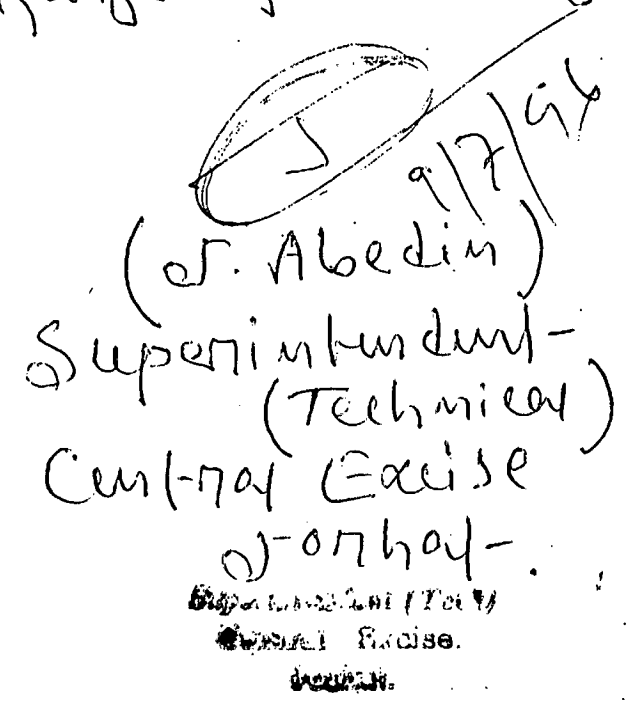 9/7/96
(J. Abedin)
Superintendent
(Technical)
Central Excise
Jorhat.
Superintendent (Tech)
Central Excise.
Jorhat.